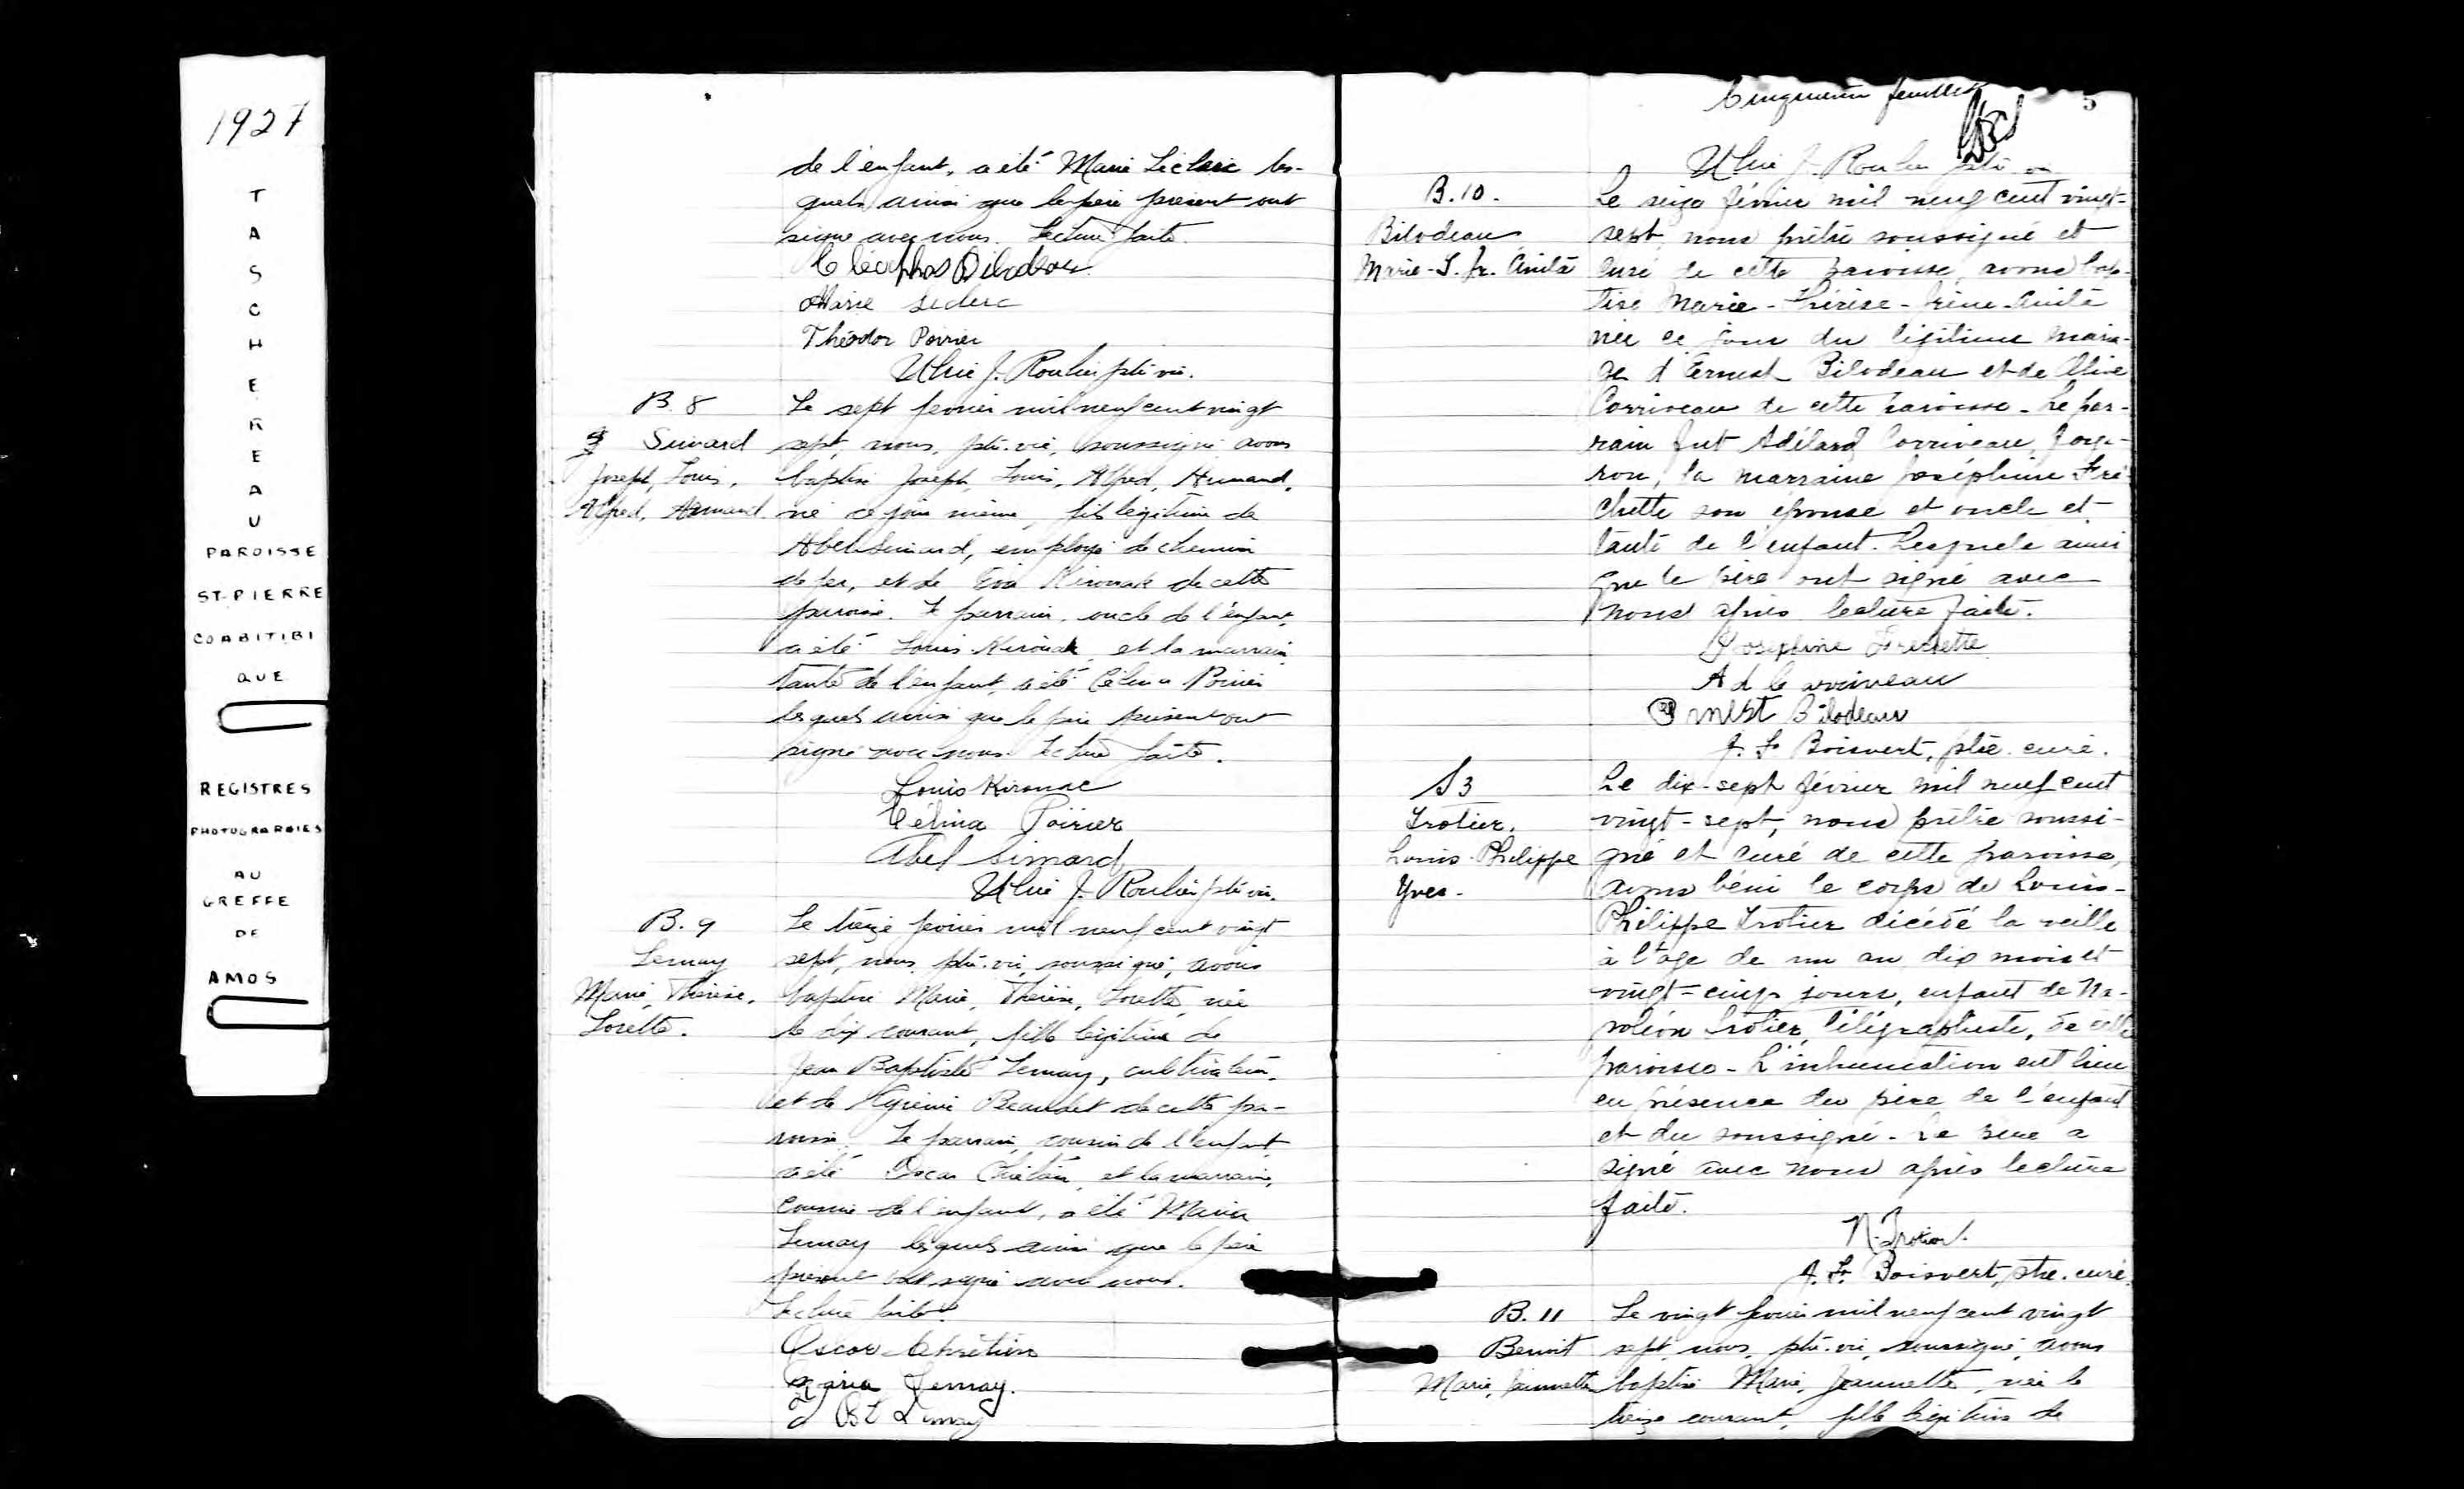 1927
TASCHEREAU
PAROISSE
ST-PIERRE
CO ABITIBI
QUE
REGISTRES
PHOTOGRAPHIES
AU
GREFFE
DE
AMOS
de l'enfant, a été Marie Leclerc les-
quels ainsi que le père présent ont
signé avec nous. Lecture faite.
Cléophas Bilodeau
Marie Leclerc
Théodor Poirier
J. Roulier ptre vic.
B. 8
Simard
Joseph, Louis,
Alfred, Armand.
Le sept février mil neuf cent vingt
sept, nous, ptre. vic, soussigné avons
baptisé Joseph, Louis, Alfred, Armand,
né ce jour même, fils légitime de
Abel Simard, employé de chemin
de fer, et de Eva Kirouak de cette
paroisse. Le parrain, oncle de l'enfant,
a été Louis Kirouak, et la marraine
tante de l'enfant, a été Célina Poirier
lesquels ainsi que le père présent ont
signé avec nous. Lecture faite.
Louis Kirouac
Célina Poirier
Abel Simard
J. Roulier ptre vic.
B. 9
Lemay
Marie, Thérèse,
Lorette.
Le treize février mil neuf cent vingt
sept, nous, ptre. vic, soussigné, avons
baptisé Marie, Thérèse, Lorette, née
le dix courant, fille légitime de
Jean Baptiste Lemay, cultivateur,
et de Beaudet de cette pa-
roisse. Le parrain, cousin de l'enfant,
a été Oscar Chrétien, et la marraine,
cousine de l'enfant, a été Maria
Lemay lesquels ainsi que le père
présent ont signé avec nous.
Lecture faite.
Oscar Chrétien
Maria Lemay.
J Bt Lemay
Cinquième feuillet
5
J. Roulier ptre vic
B. 10.
Bilodeau
Marie-T. Ir. Anita
Le seize février mil neuf cent vingt-
sept, nous prêtre soussigné et
curé de cette paroisse, avons bap-
tisé Marie-Thérèse-Irène-Anita
née ce jour du légitime maria-
ge d'Ernest Bilodeau et de Alice
Corriveau de cette paroisse - Le par-
rain fut Adélard Corriveau, forge-
ron, la marraine Joséphine Fré-
chette son épouse et oncle et
tante de l'enfant. Lesquels ainsi
que le père ont signé avec
nous après lecture faite.
Joséphine Frechette
Ad Corriveau
Ernest Bilodeau
J. F. Boisvert, ptre. curé.
S3
Trotier,
Louis-Philippe
Yves-
Le dix-sept février mil neuf cent
vingt-sept, nous prêtre soussi-
gné et curé de cette paroisse,
avons béni le corps de Louis-
Philippe Trotier décédé la veille
à l'âge de un an dix mois et
vingt-cinq jours, enfant de Na-
poléon Trotier, télégraphiste, de cette
paroisse - L'inhumation eut lieu
en présence du père de l'enfant
et du soussigné - Le père a
signé avec nous après lecture
faite.
N. Trotier.
J. F. Boisvert, ptre. curé.
B. 11
Benoit
Marie, Jeannette
Le vingt février mil neuf cent vingt
sept, nous, ptre. vic, soussigné, avons
baptisé Marie, Jeannette, née le
treize courant, fille légitime de